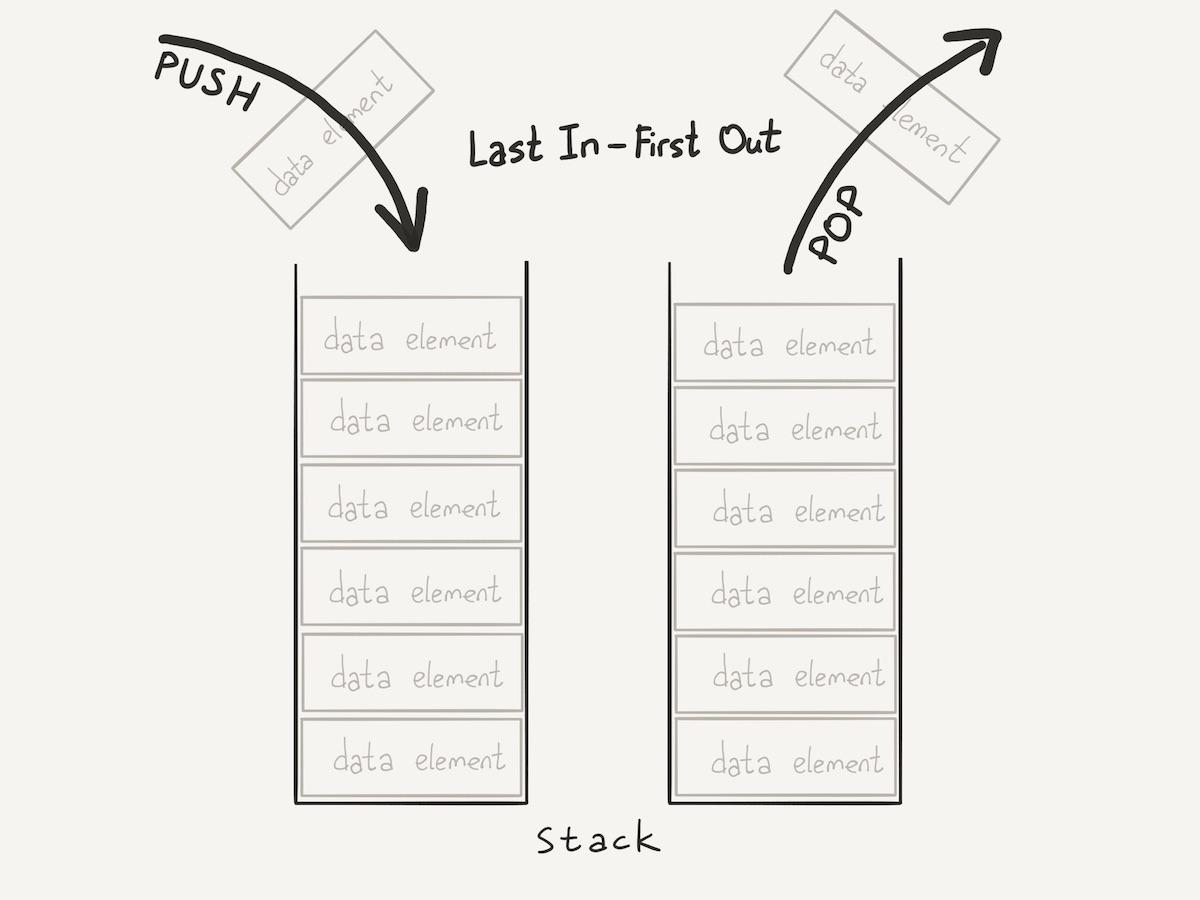 PUSH
data element
Last In-First Out
data element
POP
data element
data element
data element
data element
data element
data element
data element
data element
data element
data element
data element
data element
Stack